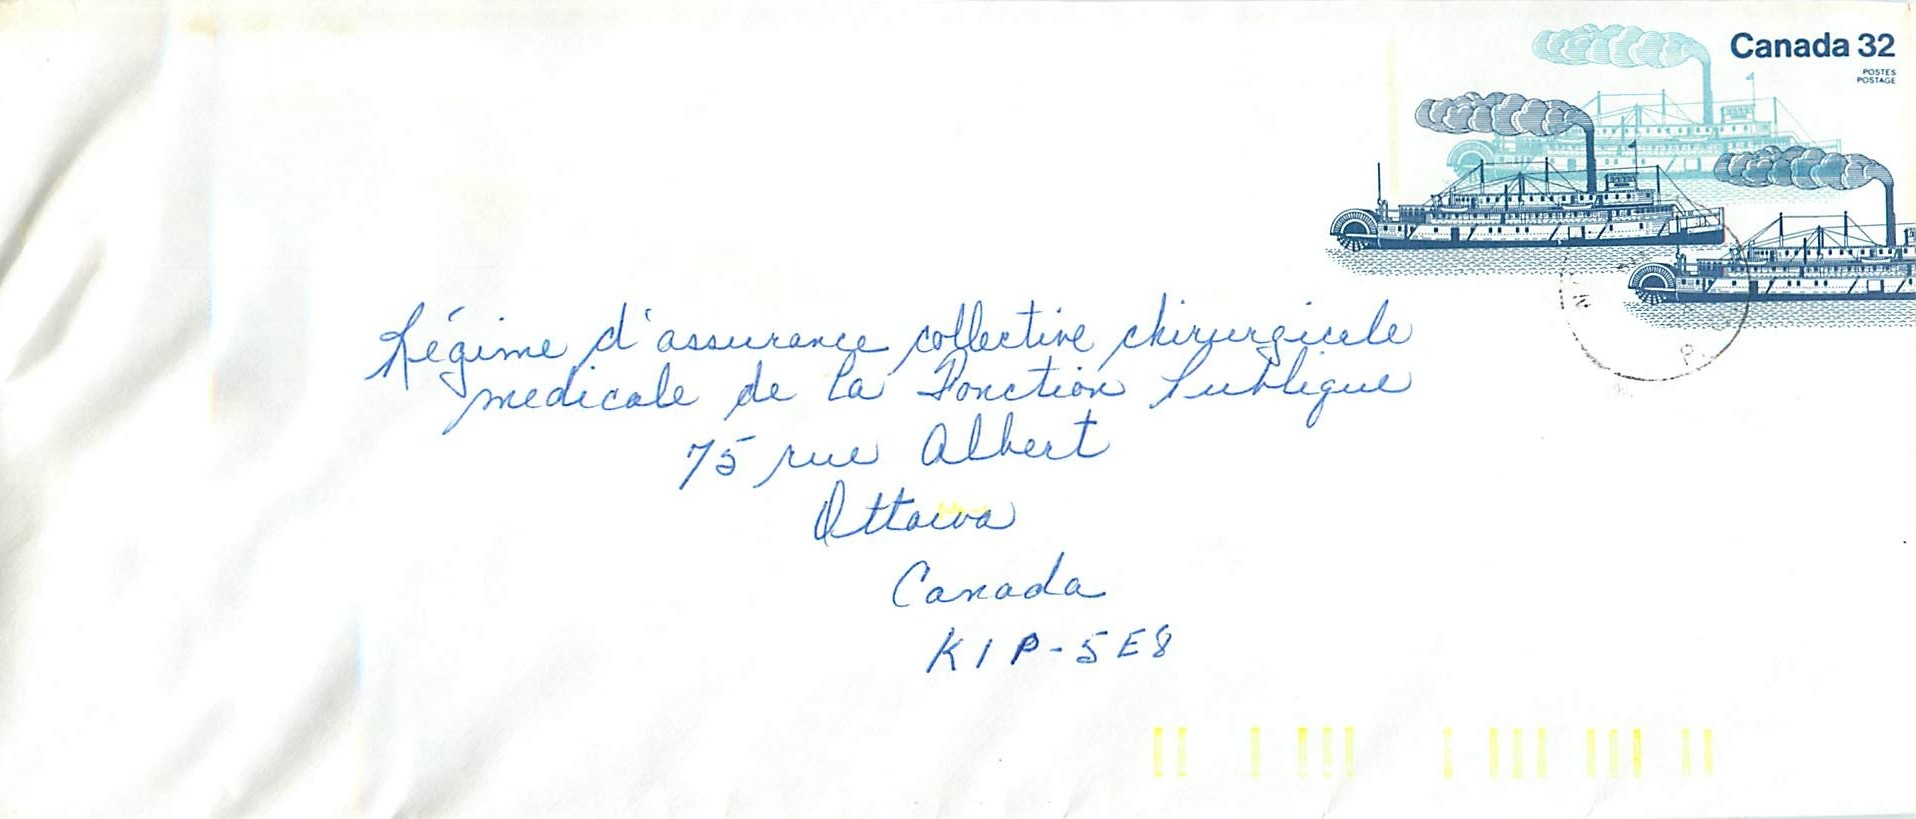 Canada 32
POSTES
POSTAGE
Régime d'assurance collective chirurgicale
medicale de la Fonction Publique
75 rue Albert
Ottawa
Canada
K1P-5E8